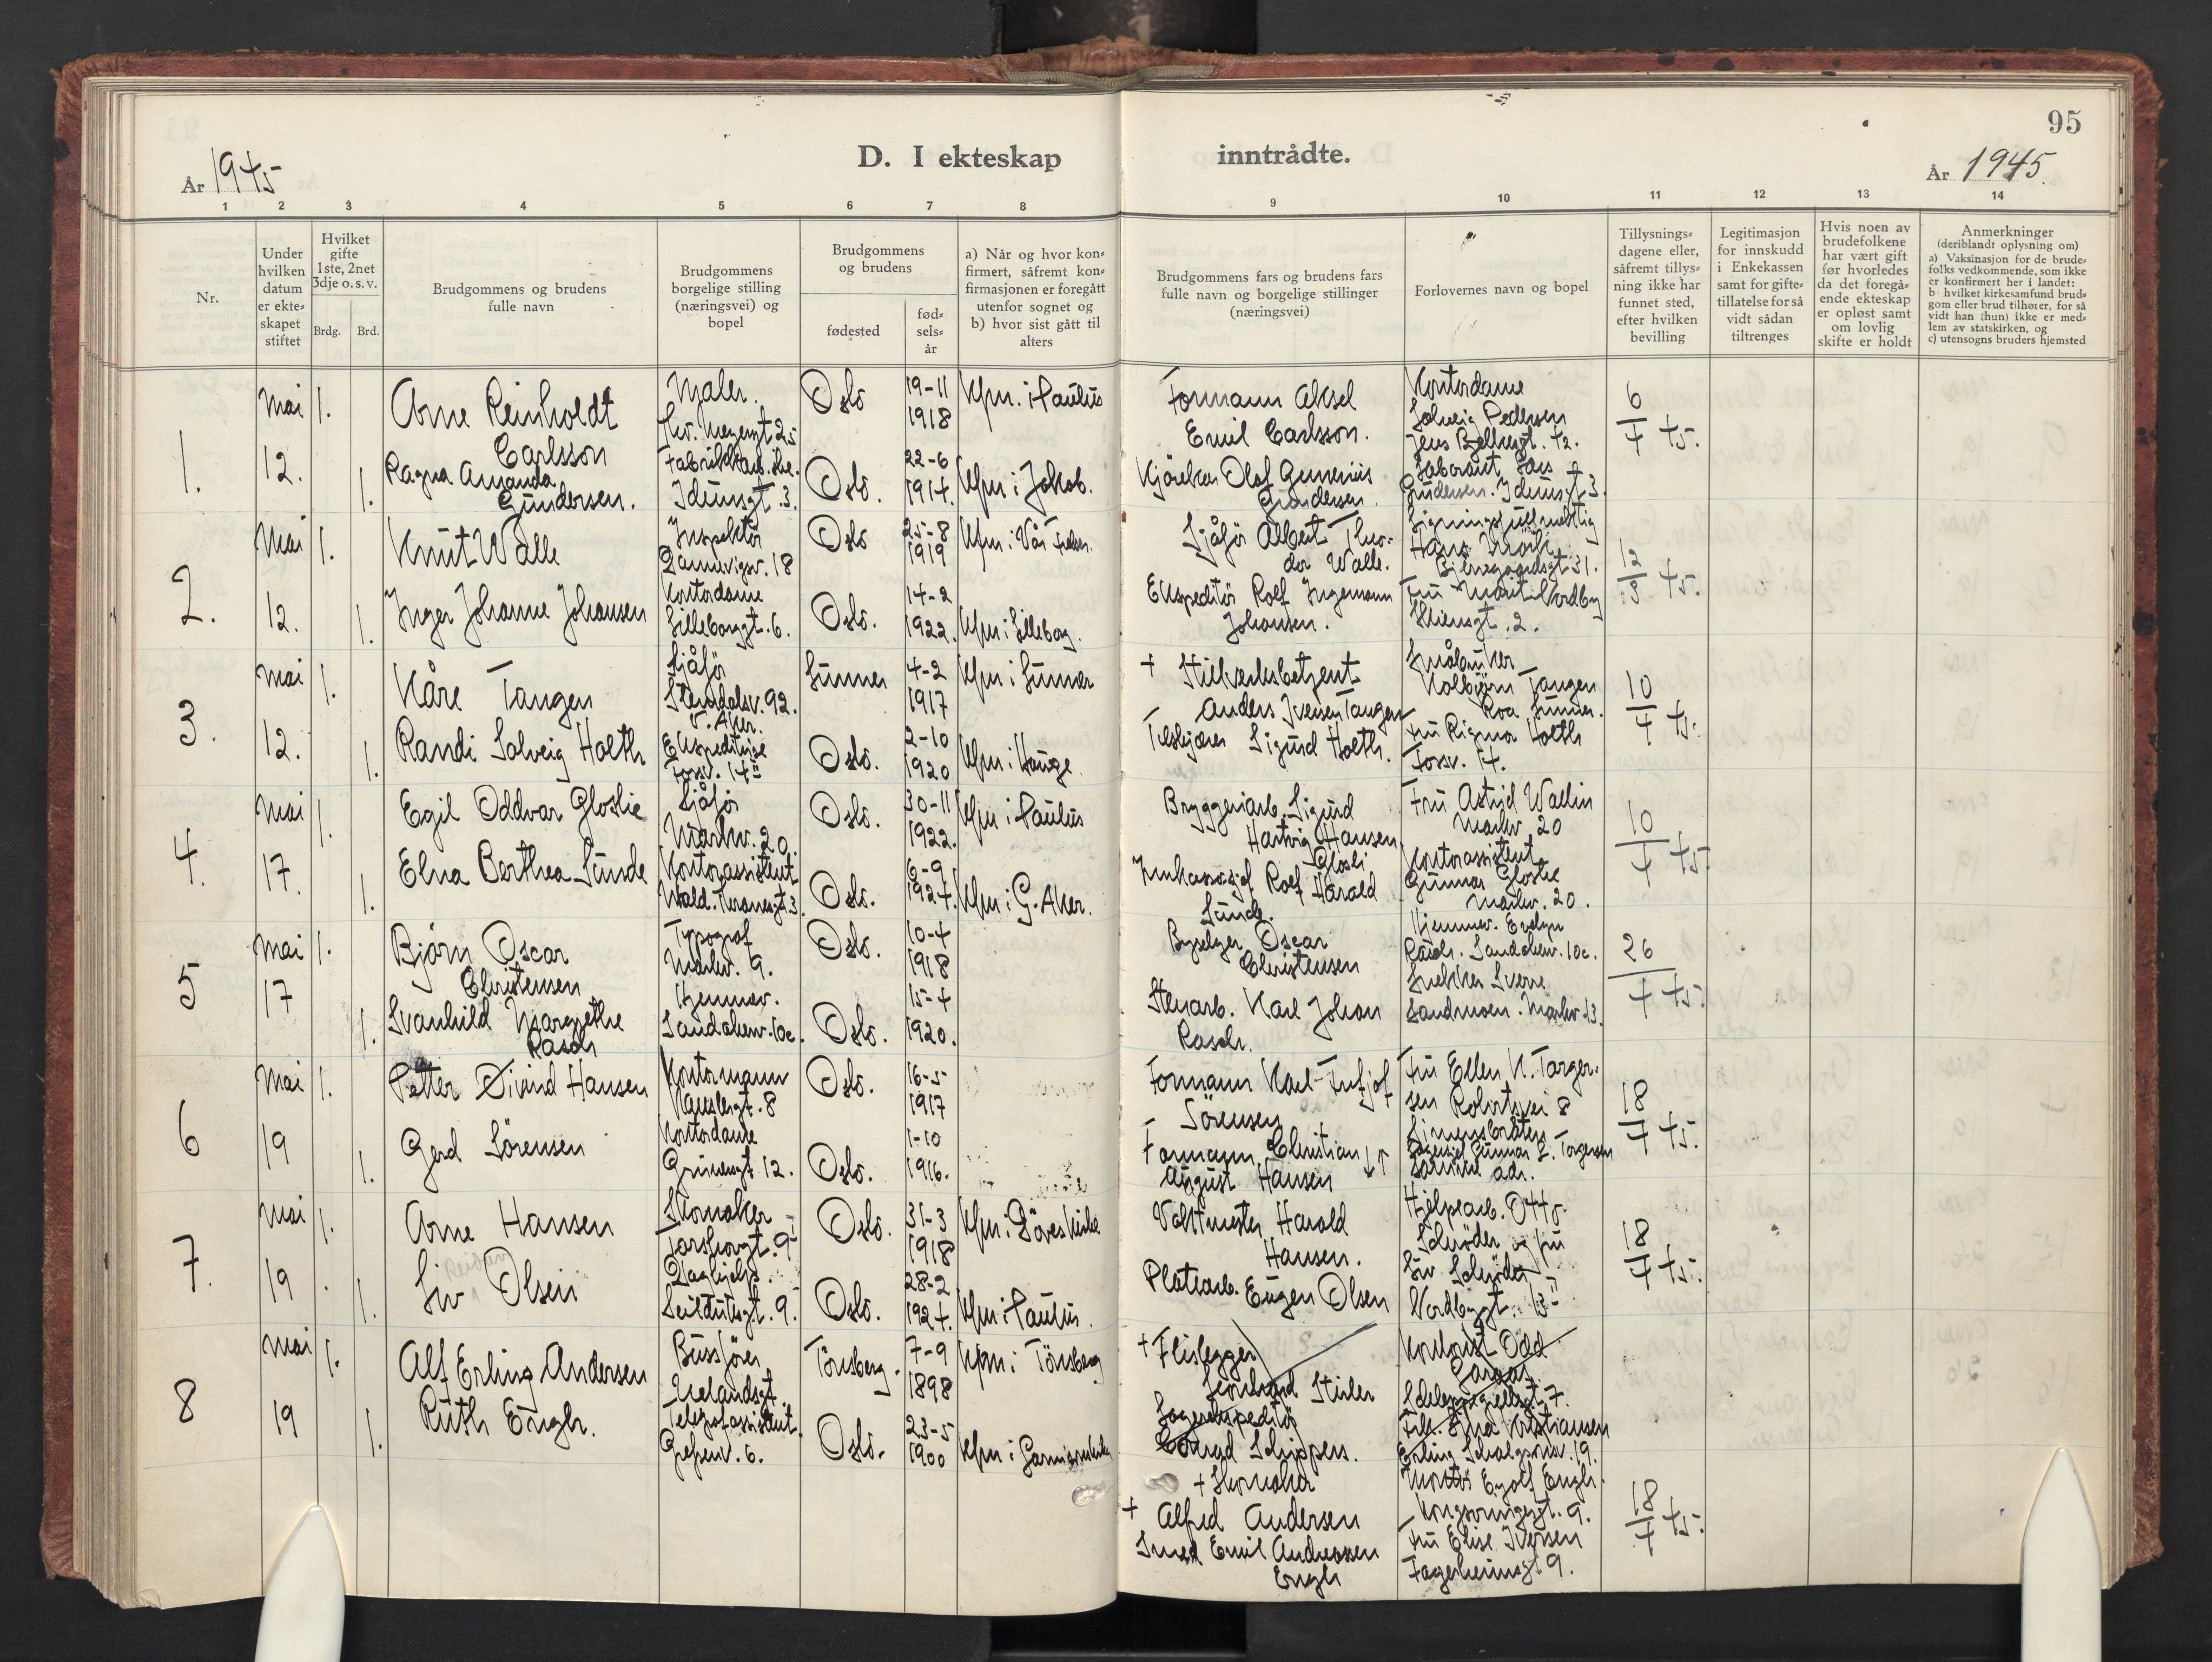 95
D. I ekteskap inntrådte.
År 1945
År 1945.
1 2 3 4 5 6 7 8 9 10 11 12 13 14
Nr.
Under hvilken datum er ekteskapet stiftet
Hvilket gifte 1ste, 2net 3dje o.s.v.
Brdg. Brd.
Brudgommens og brudens fulle navn
Brudgommens borgelige stilling (næringsvei) og bopel
Brudgommens og brudens
fødested
fødselsår
a) Når og hvor konfirmert, såfremt konfirmasjonen er foregått utenfor sognet og
b) hvor sist gått til alters
Brudgommens fars og brudens fars fulle navn og borgelige stillinger (næringsvei)
Forlovernes navn og bopel
Tillysningsdagene eller, såfremt tillysning ikke har funnet sted, efter hvilken bevilling
Legitimasjon for innskudd i Enkekassen samt for giftetillatelse for så vidt sådan tiltrenges
Hvis noen av brudefolkene har vært gift før hvorledes da det foregående ekteskap er opløst samt om lovlig skifte er holdt
Anmerkninger
(deriblandt oplysning om)
a) Vaksinasjon for de brudefolks vedkommende, som ikke er konfirmert her i landet:
b) hvilket kirkesamfund brudgom eller brud tilhører, for så vidt han (hun) ikke er medlem av statskirken, og
c) utensogns bruders hjemsted
1.
Mai 12.
1.
Arne Reinholdt Carlsson
Maler.
Oslo
19-11 1918
Kfm. i Paulus
Formann Aksel Emil Carlsson.
Kontordame Solveig Pedersen
6/4 45.
1.
Ragna Amanda Gundersen.
Idunsgt. 3.
Oslo.
22-6 1914.
Kfm i Jakob.
Gundersen
Gundersen. Idunsgt 3.
2.
Mai 12.
1.
Knut Walle
Inspektør
Oslo
25-8 1919
Kfm. i Vår Frelser.
Sjåfør Albert Theodor Walle.
12/3 45.
1.
Inger Johanne Johansen
Kontordame
Lilleborggt. 6.
Oslo.
14-2 1922.
Kfm i Lilleborg.
Ekspeditør Rolf Ingemann Johansen.
Fru Marit Nordby
Skiensgt. 2.
3.
Mai 12.
1.
Kåre Tangen
Sjåfør
92.
V. Aker.
Lunner
4-2 1917
Kfm i Lunner
+ Anders Iversen Tangen
Småbruker Kolbjørn Tangen
Roa Lunner.
10/4 45.
1.
Randi Solveig Holth
Ekspeditrise
Fossv. 14
Oslo.
2-10 1920
Kfm. i Hauge.
Sigurd Holth.
Fru Rigmor Holth
Fossv. 14.
4.
Mai 17.
1.
Egil Oddvar Gloslie
Sjåfør
Markv. 20.
Oslo.
30-11 1922.
Kfm i Paulus
Bryggeriarb. Sigurd Hartvig Hansen Glosli
Fru Astrid Wallin
Markv. 20
10/4 45.
1.
Elna Berthea Sunde
Kontorassistent
Oslo.
6-9 1924.
Kfm i G. Aker.
Rolf Harald Sunde.
Kontorassistent Gunnar Gloslie
Markv. 20.
5
Mai 17
1.
Bjørn Oscar Christensen
Typograf
Markv. 9.
Oslo.
10-4 1918
Oscar Christensen
Hjemmev. Evelyn Rasch. Sandakerv. 10c.
26/4 45.
1.
Svanhild Margrethe Rasch
Hjemmev.
Sandakerv. 10c.
Oslo.
15-4 1920.
Stenarb. Karl Johan Rasch.
Snekker Sverre Sandmoen. Markv 23.
6
Mai 19
1.
Petter Øivind Hansen
Kontormann
Oslo.
16-5 1917
Formann Karl Fritjof Sörensen
Fru Ellen K. Torgersen
18/4 45.
1.
Gerd Sörensen
Kontordame
Grünersgt. 12.
Oslo.
1-10 1916.
Formann Christian August Hansen
Gunnar L. Torgersen
samme adr.
7.
Mai 19.
1.
Arne Hansen
Skomaker
Torshovgt. 9
Oslo.
31-3 1918
Kfm. i Döves kirke
Vaktmester Harald Hansen.
Hjelpearb. Otto Schrøder og fru Siv Schrøder
Nordbygt. 13
18/4 45.
1.
Siv Olsen
Daghjelp.
Seilduksgt. 9.
Oslo.
28-2 1924.
Kfm i Paulus.
Platearb. Eugen Olsen
8
Mai 19
1.
Alf Erling Andersen
Bussfører
Uelandsgt
Tönsberg.
7-9 1898
Kfm. i Tönsberg
+ Flislegger
Kontorist Odd
1.
Ruth Engh.
Telegrafassistent.
Grefsenv. 6.
Oslo.
23-5 1900
Kfm i
Lagerekspeditör
Conrad Schippers.
Kristiansen
Erling Skjalgsonsv. 19.
+ Skomaker
+ Alfred Andersen
Eyolf Engh.
Kongsvingergt. 9.
18/4 45.
Smed Emil Andreassen Engh
Fru Elise Iversen
Fagerheimsgt 9.